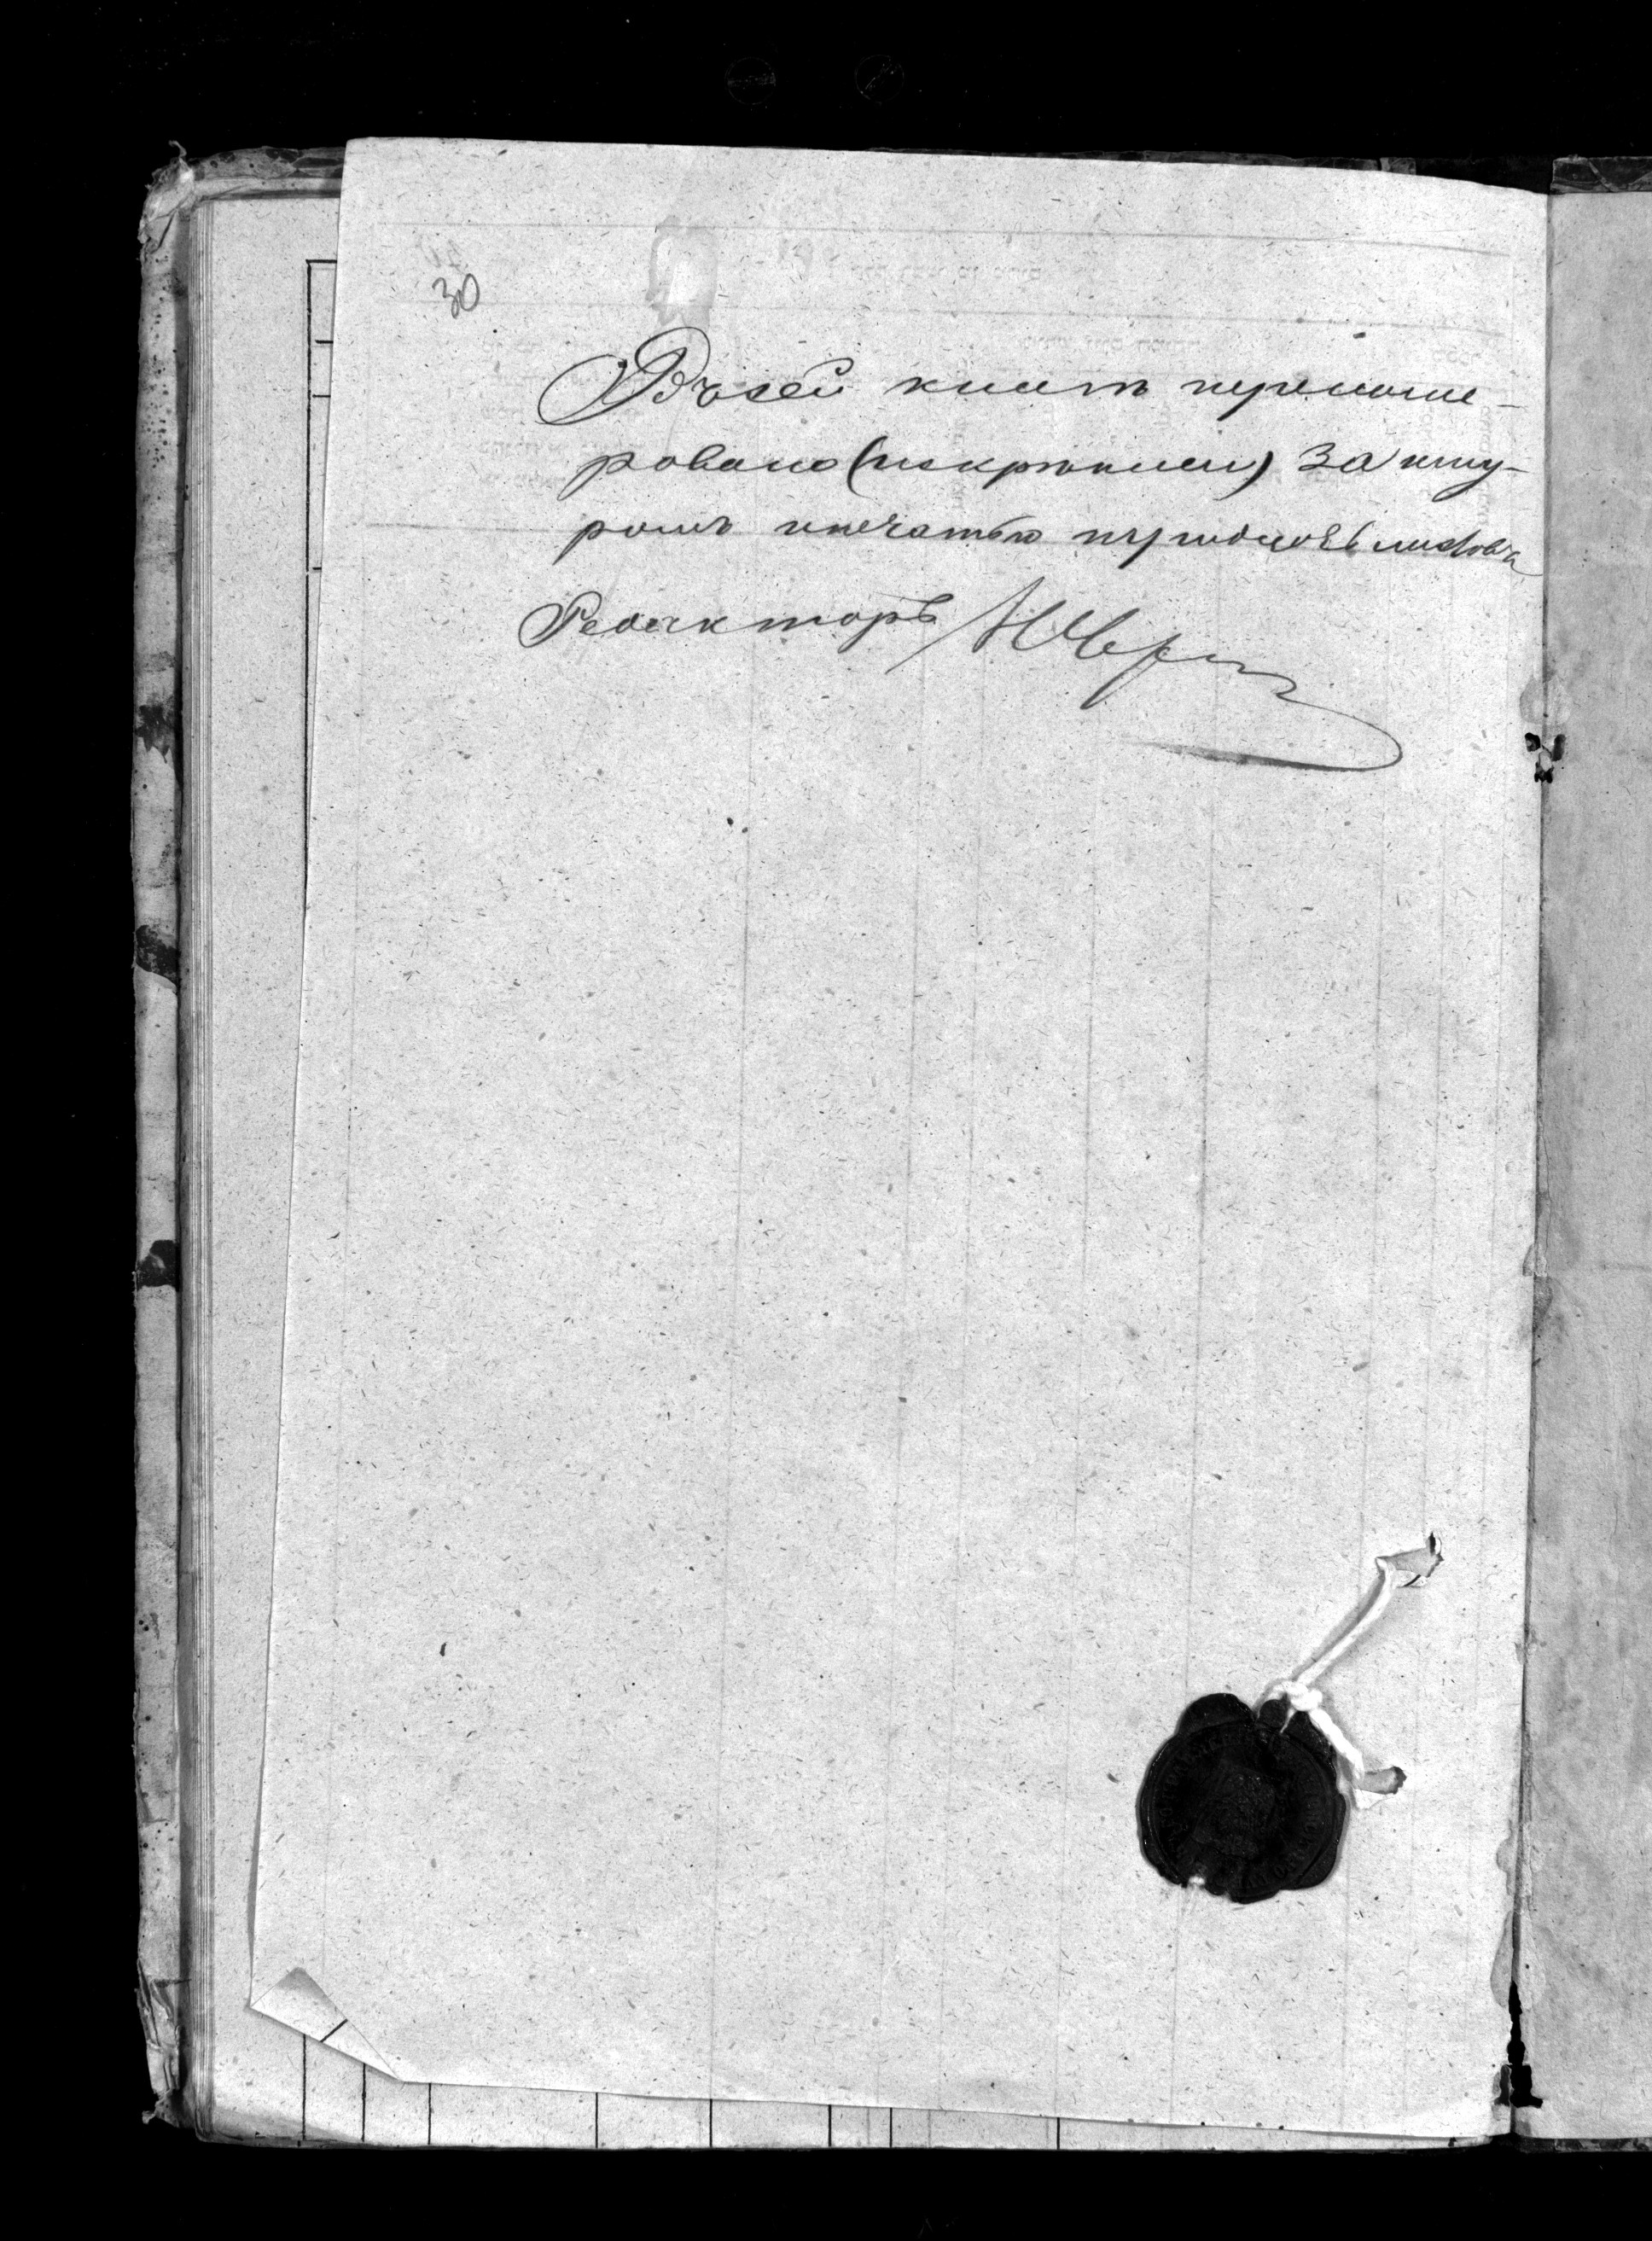 30
Въ сей книгѣ перенуме-
ровано (и скрѣплен) за шну-
ромъ и печатью тридцать листовъ
Редакторъ